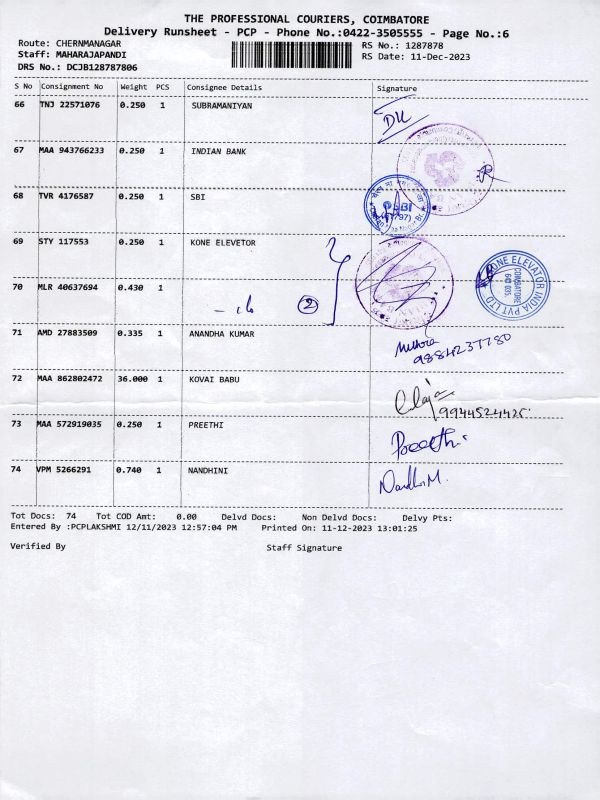 THE PROFESSIONAL COURIERS, COIMBATORE
Delivery Runsheet - PCP - Phone No.:0422-3505555 - Page No.:6
Route: CHERNMANAGAR RS No.: 1287878
Staff: MAHARAJAPANDI RS Date: 11-Dec-2023
DRS No.: DCJB128787806
S No Consignment No Weight PCS Consignee Details Signature
66 TNJ 22571076 0.250 1 SUBRAMANIYAN
67 MAA 943766233 0.250 1 INDIAN BANK
68 TVR 4176587 0.250 1 SBI
SBI
69 STY 117553 0.250 1 KONE ELEVETOR
KONE ELEVATOR INDIA PVT LTD
COIMBATORE
70 MLR 40637694 0.430 1
2
71 AMD 27883509 0.335 1 ANANDHA KUMAR
9884237780
72 MAA 862802472 36.000 1 KOVAI BABU
9944524425
73 MAA 572919035 0.250 1 PREETHI Preethi
74 VPM 5266291 0.740 1 NANDHINI Nandhini M.
Tot Docs: 74 Tot COD Amt: 0.00 Delvd Docs: Non Delvd Docs: Delvy Pts:
Entered By :PCPLAKSHMI 12/11/2023 12:57:04 PM Printed On: 11-12-2023 13:01:25
Verified By Staff Signature